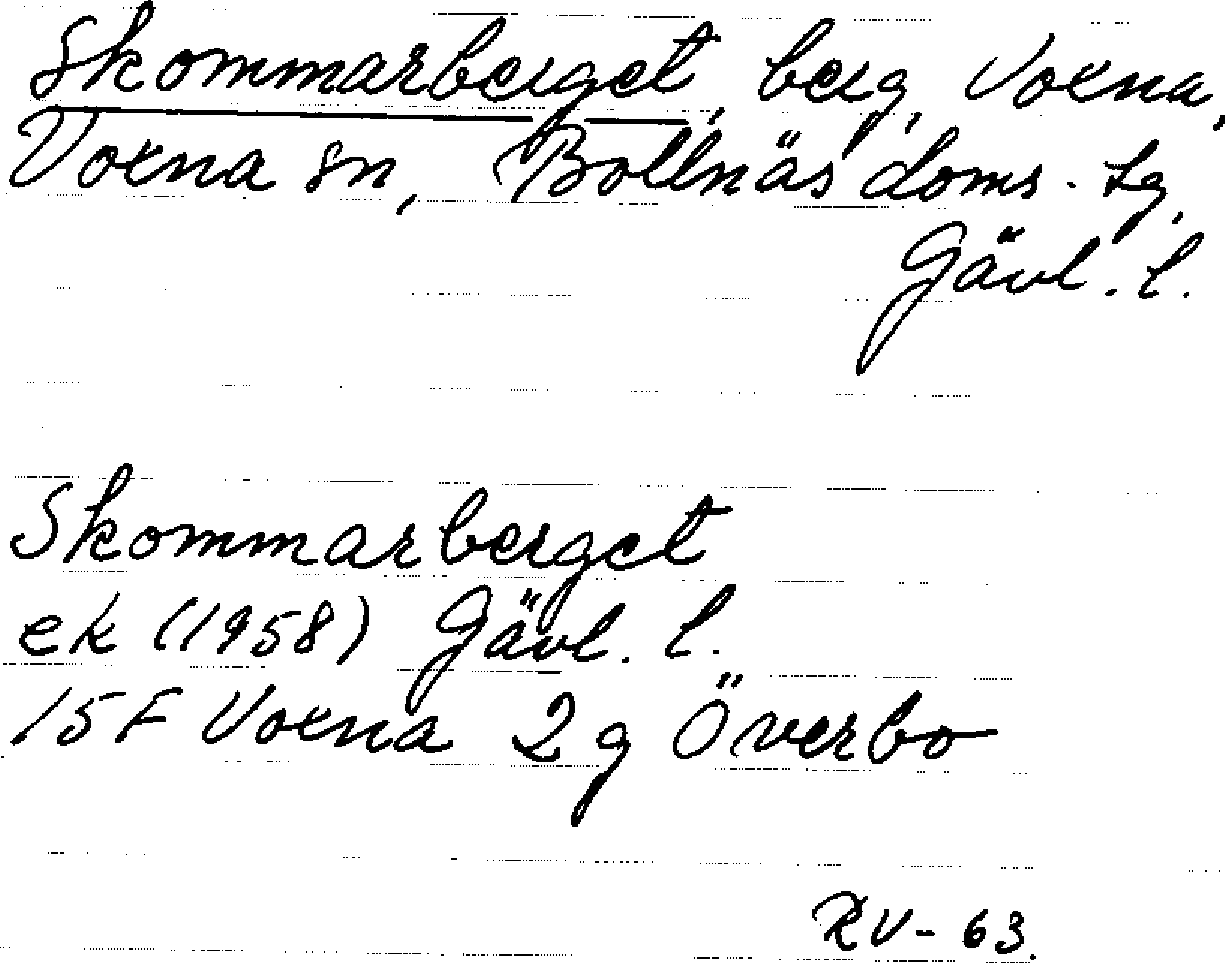 Skommarberget, berg, Voxna,
Voxna sn, Bollnäs doms. tg,
Gävl. l.
Skommarberget
ek (1958) Gävl. l.
15F Voxna 2g Överbo
RV-63.